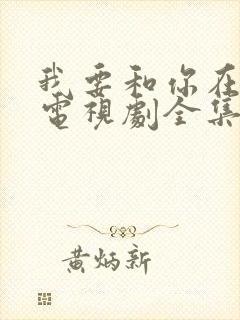 我要和你在
電視劇全集
黄炳新